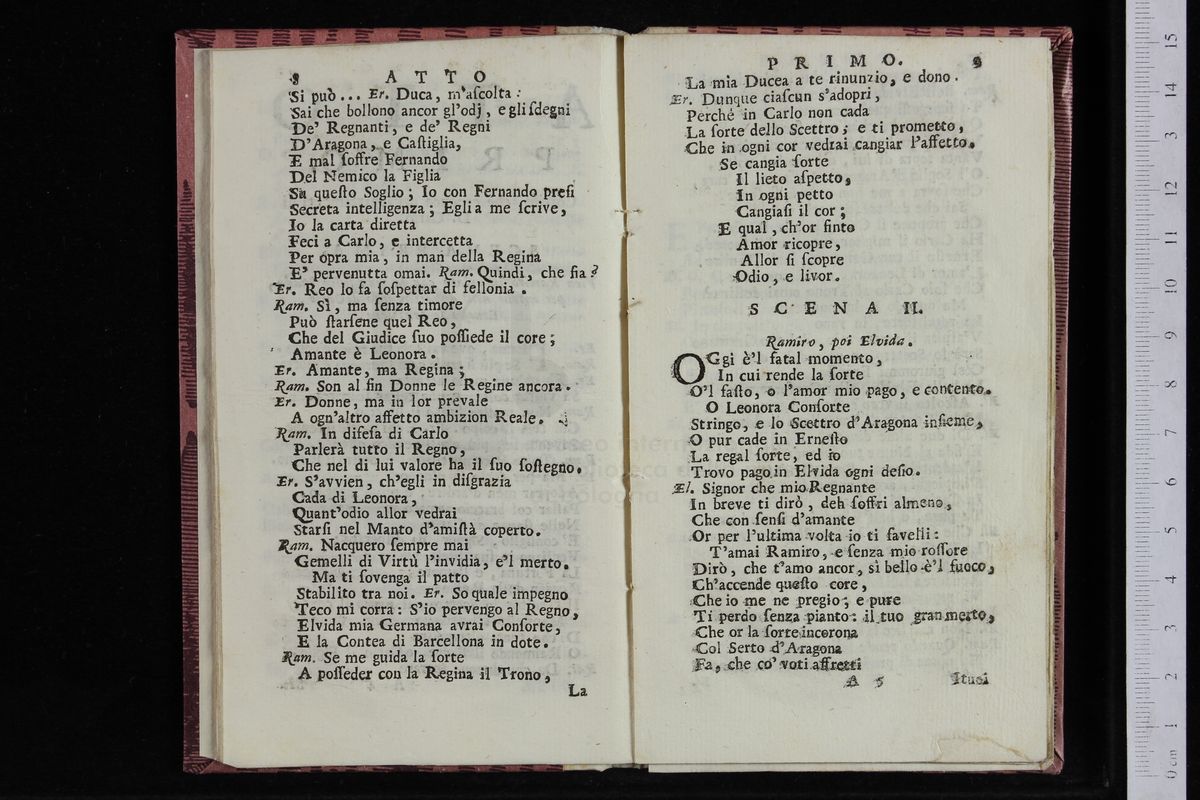 8 ATTO
Si può ... Er. Duca, m'aſcolta:
Sai che bollono ancor gl'odj, e gli ſdegni
De' Regnanti, e de' Regni
D'Aragona, e Caſtiglia,
E mal ſoffre Fernando
Del Nemico la Figlia
Su queſto Soglio; Io con Fernando preſi
Secreta intelligenza; Egli a me ſcrive,
Io la carta diretta
Feci a Carlo, e intercetta
Per opra mia, in man della Regina
E' pervenutta omai. Ram. Quindi, che ſia?
Er. Reo lo fa ſoſpettar di fellonia.
Ram. Sì, ma ſenza timore
Può ſtarſene quel Reo,
Che del Giudice ſuo poſſiede il core;
Amante è Leonora.
Er. Amante, ma Regina;
Ram. Son al fin Donne le Regine ancora.
Er. Donne, ma in lor prevale
A ogn'altro affetto ambizion Reale.
Ram. In difeſa di Carlo
Parlerà tutto il Regno,
Che nel di lui valore ha il ſuo ſoſtegno.
Er. S'avvien, ch'egli in diſgrazia
Cada di Leonora,
Quant'odio allor vedrai
Starſi nel Manto d'amiſtà coperto.
Ram. Nacquero ſempre mai
Gemelli di Virtù l'invidia, e'l merto.
Ma ti ſovenga il patto
Stabilito tra noi. Er. So quale impegno
Teco mi corra: S'io pervengo al Regno,
Elvida mia Germana avrai Conſorte,
E la Contea di Barcellona in dote.
Ram. Se me guida la ſorte
A poſſeder con la Regina il Trono,
La
PRIMO. 9
La mia Ducea a te rinunzio, e dono.
Er. Dunque ciaſcun s'adopri,
Perché in Carlo non cada
La ſorte dello Scettro; e ti prometto,
Che in ogni cor vedrai cangiar l'affetto.
Se cangia ſorte
Il lieto aſpetto,
In ogni petto
Cangiaſi il cor;
E qual, ch'or finto
Amor ricopre,
Allor ſi ſcopre
Odio, e livor.
SCENA II.
Ramiro, poi Elvida.
OGgi è'l fatal momento,
In cui rende la ſorte
O'l faſto, o l'amor mio pago, e contento.
O Leonora Conſorte
Stringo, e lo Scettro d'Aragona inſieme,
O pur cade in Erneſto
La regal ſorte, ed io
Trovo pago in Elvida ogni deſio.
El. Signor che mio Regnante
In breve ti dirò, deh ſoffri almeno,
Che con ſenſi d'amante
Or per l'ultima volta io ti favelli:
T'amai Ramiro, e ſenza mio roſſore
Dirò, che t'amo ancor, sì bello è'l fuoco,
Ch'accende queſto core,
Che io me ne pregio; e pure
Ti perdo ſenza pianto: il tuo gran merto,
Che or la ſorte incorona
Col Serto d'Aragona
Fa, che co' voti affretti
A 5 Ituoi